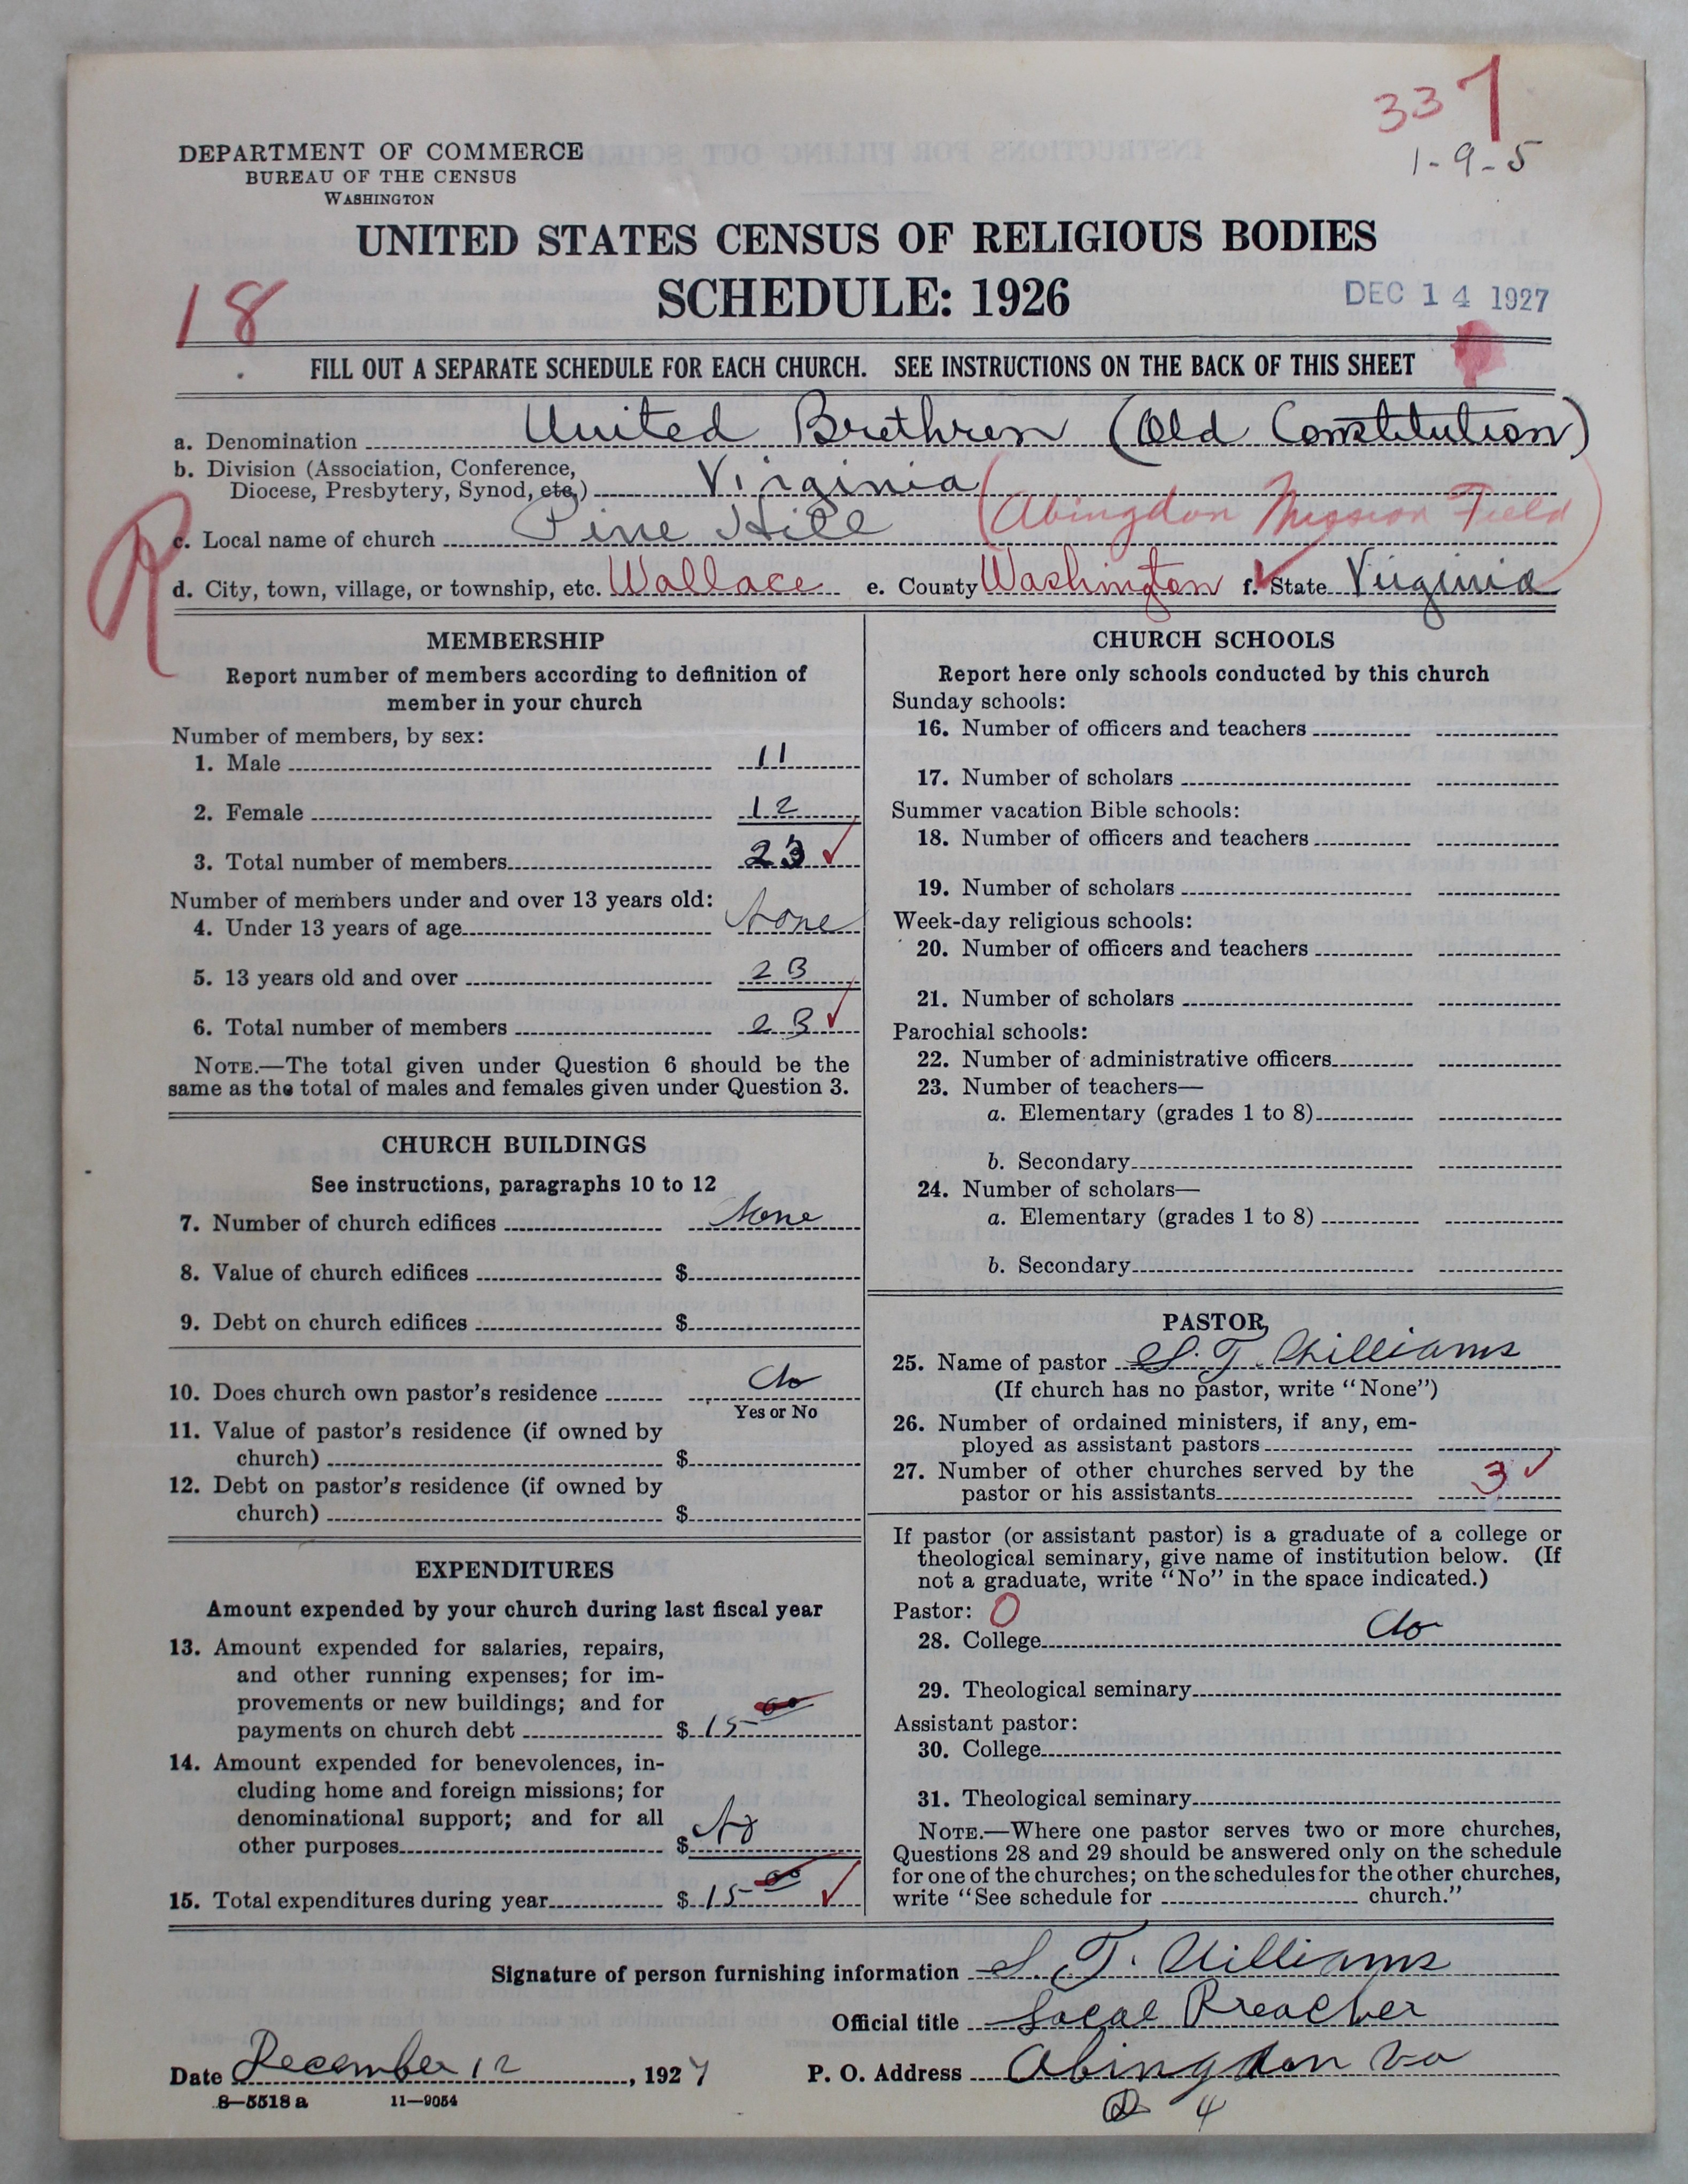 337
1-9-5
DEPARTMENT OF COMMERCE
BUREAU OF THE CENSUS
WASHINGTON
UNITED STATES CENSUS OF RELIGIOUS BODIES
SCHEDULE: 1926
18
DEC 14 1927
FILL OUT A SEPARATE SCHEDULE FOR EACH CHURCH. SEE INSTRUCTIONS ON THE BACK OF THIS SHEET
a. Denomination United Brethren (Old Constitution)
b. Division (Association, Conference,
Diocese, Presbytery, Synod, etc.) Virginia
(Abingdon Mission Field)
R
c. Local name of church Pine Hill
d. City, town, village, or township, etc. Wallace e. County Washington f. State Virginia
MEMBERSHIP
Report number of members according to definition of
member in your church
Number of members, by sex:
1. Male 11
2. Female 12
3. Total number of members 23 ✓
Number of members under and over 13 years old:
4. Under 13 years of age None
5. 13 years old and over 23
6. Total number of members 23 ✓
NOTE.—The total given under Question 6 should be the
same as the total of males and females given under Question 3.
CHURCH BUILDINGS
See instructions, paragraphs 10 to 12
7. Number of church edifices None
8. Value of church edifices $
9. Debt on church edifices $
10. Does church own pastor's residence No
Yes or No
11. Value of pastor's residence (if owned by
church) $
12. Debt on pastor's residence (if owned by
church) $
EXPENDITURES
Amount expended by your church during last fiscal year
13. Amount expended for salaries, repairs,
and other running expenses; for im-
provements or new buildings; and for
payments on church debt $ 15 00
14. Amount expended for benevolences, in-
cluding home and foreign missions; for
denominational support; and for all
other purposes $ No
15. Total expenditures during year $ 15 00 ✓
CHURCH SCHOOLS
Report here only schools conducted by this church
Sunday schools:
16. Number of officers and teachers
17. Number of scholars
Summer vacation Bible schools:
18. Number of officers and teachers
19. Number of scholars
Week-day religious schools:
20. Number of officers and teachers
21. Number of scholars
Parochial schools:
22. Number of administrative officers
23. Number of teachers—
a. Elementary (grades 1 to 8)
b. Secondary
24. Number of scholars—
a. Elementary (grades 1 to 8)
b. Secondary
PASTOR
25. Name of pastor S. T. Williams
(If church has no pastor, write "None")
26. Number of ordained ministers, if any, em-
ployed as assistant pastors
27. Number of other churches served by the
pastor or his assistants 3 ✓
If pastor (or assistant pastor) is a graduate of a college or
theological seminary, give name of institution below. (If
not a graduate, write "No" in the space indicated.)
Pastor: 0
28. College No
29. Theological seminary
Assistant pastor:
30. College
31. Theological seminary
NOTE.—Where one pastor serves two or more churches,
Questions 28 and 29 should be answered only on the schedule
for one of the churches; on the schedules for the other churches,
write "See schedule for church."
Signature of person furnishing information S. T. Williams
Official title Local Preacher
Date December 12, 1927 P. O. Address Abingdon Va
8—5518 a 11—9054
4